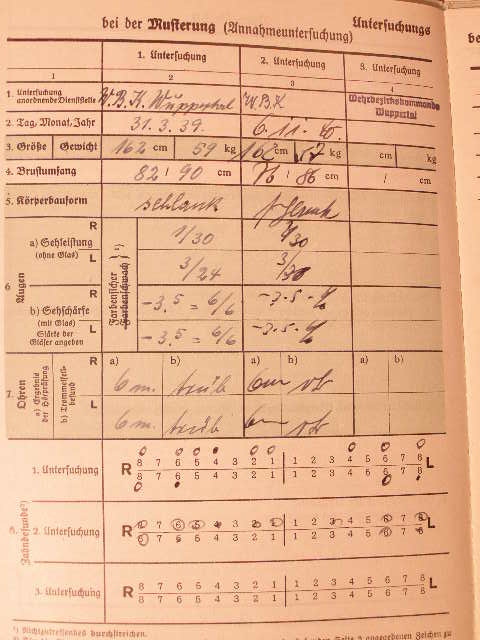 Untersuchungs
bei der Musterung (Annahmeuntersuchung)
1. Untersuchung 2. Untersuchung 3. Untersuchung
1 2 3 4
1. Untersuchung anordnende Dienststelle W.B.K. Wuppertal W.B.K Wehrbezirkskommando Wuppertal
2. Tag, Monat, Jahr 31.3.39. 6.11.40.
3. Größe Gewicht 162 cm 59 kg 162 cm 57 kg cm kg
4. Brustumfang 82 / 90 cm 76 / 86 cm / cm
5. Körperbauform schlank schlank
6 Augen
a) Sehleistung (ohne Glas) R 1/30
L 3/24
Farbensicher Farbenschwach ¹)
b) Sehschärfe (mit Glas) Stärke der Gläser angeben R -3.5 = 6/6
L -3.5 = 6/6
7. Ohren a) Ergebnis der Hörprüfung b) Trommelfellbefund
a) b) a) b) a) b)
R 6 m. trüb 6m
L 6 m. trüb 6m
8. Zahnbefunde²)
1. Untersuchung R 8 7 6 5 4 3 2 1 1 2 3 4 5 6 7 8 L
8 7 6 5 4 3 2 1 1 2 3 4 5 6 7 8
2. Untersuchung R 8 7 6 5 4 3 2 1 1 2 3 4 5 6 7 8 L
8 7 6 5 4 3 2 1 1 2 3 4 5 6 7 8
3. Untersuchung R 8 7 6 5 4 3 2 1 1 2 3 4 5 6 7 8 L
8 7 6 5 4 3 2 1 1 2 3 4 5 6 7 8
¹) Nichtzutreffendes durchstreichen.
Seite 2 angegebenen Zeichen zu
be